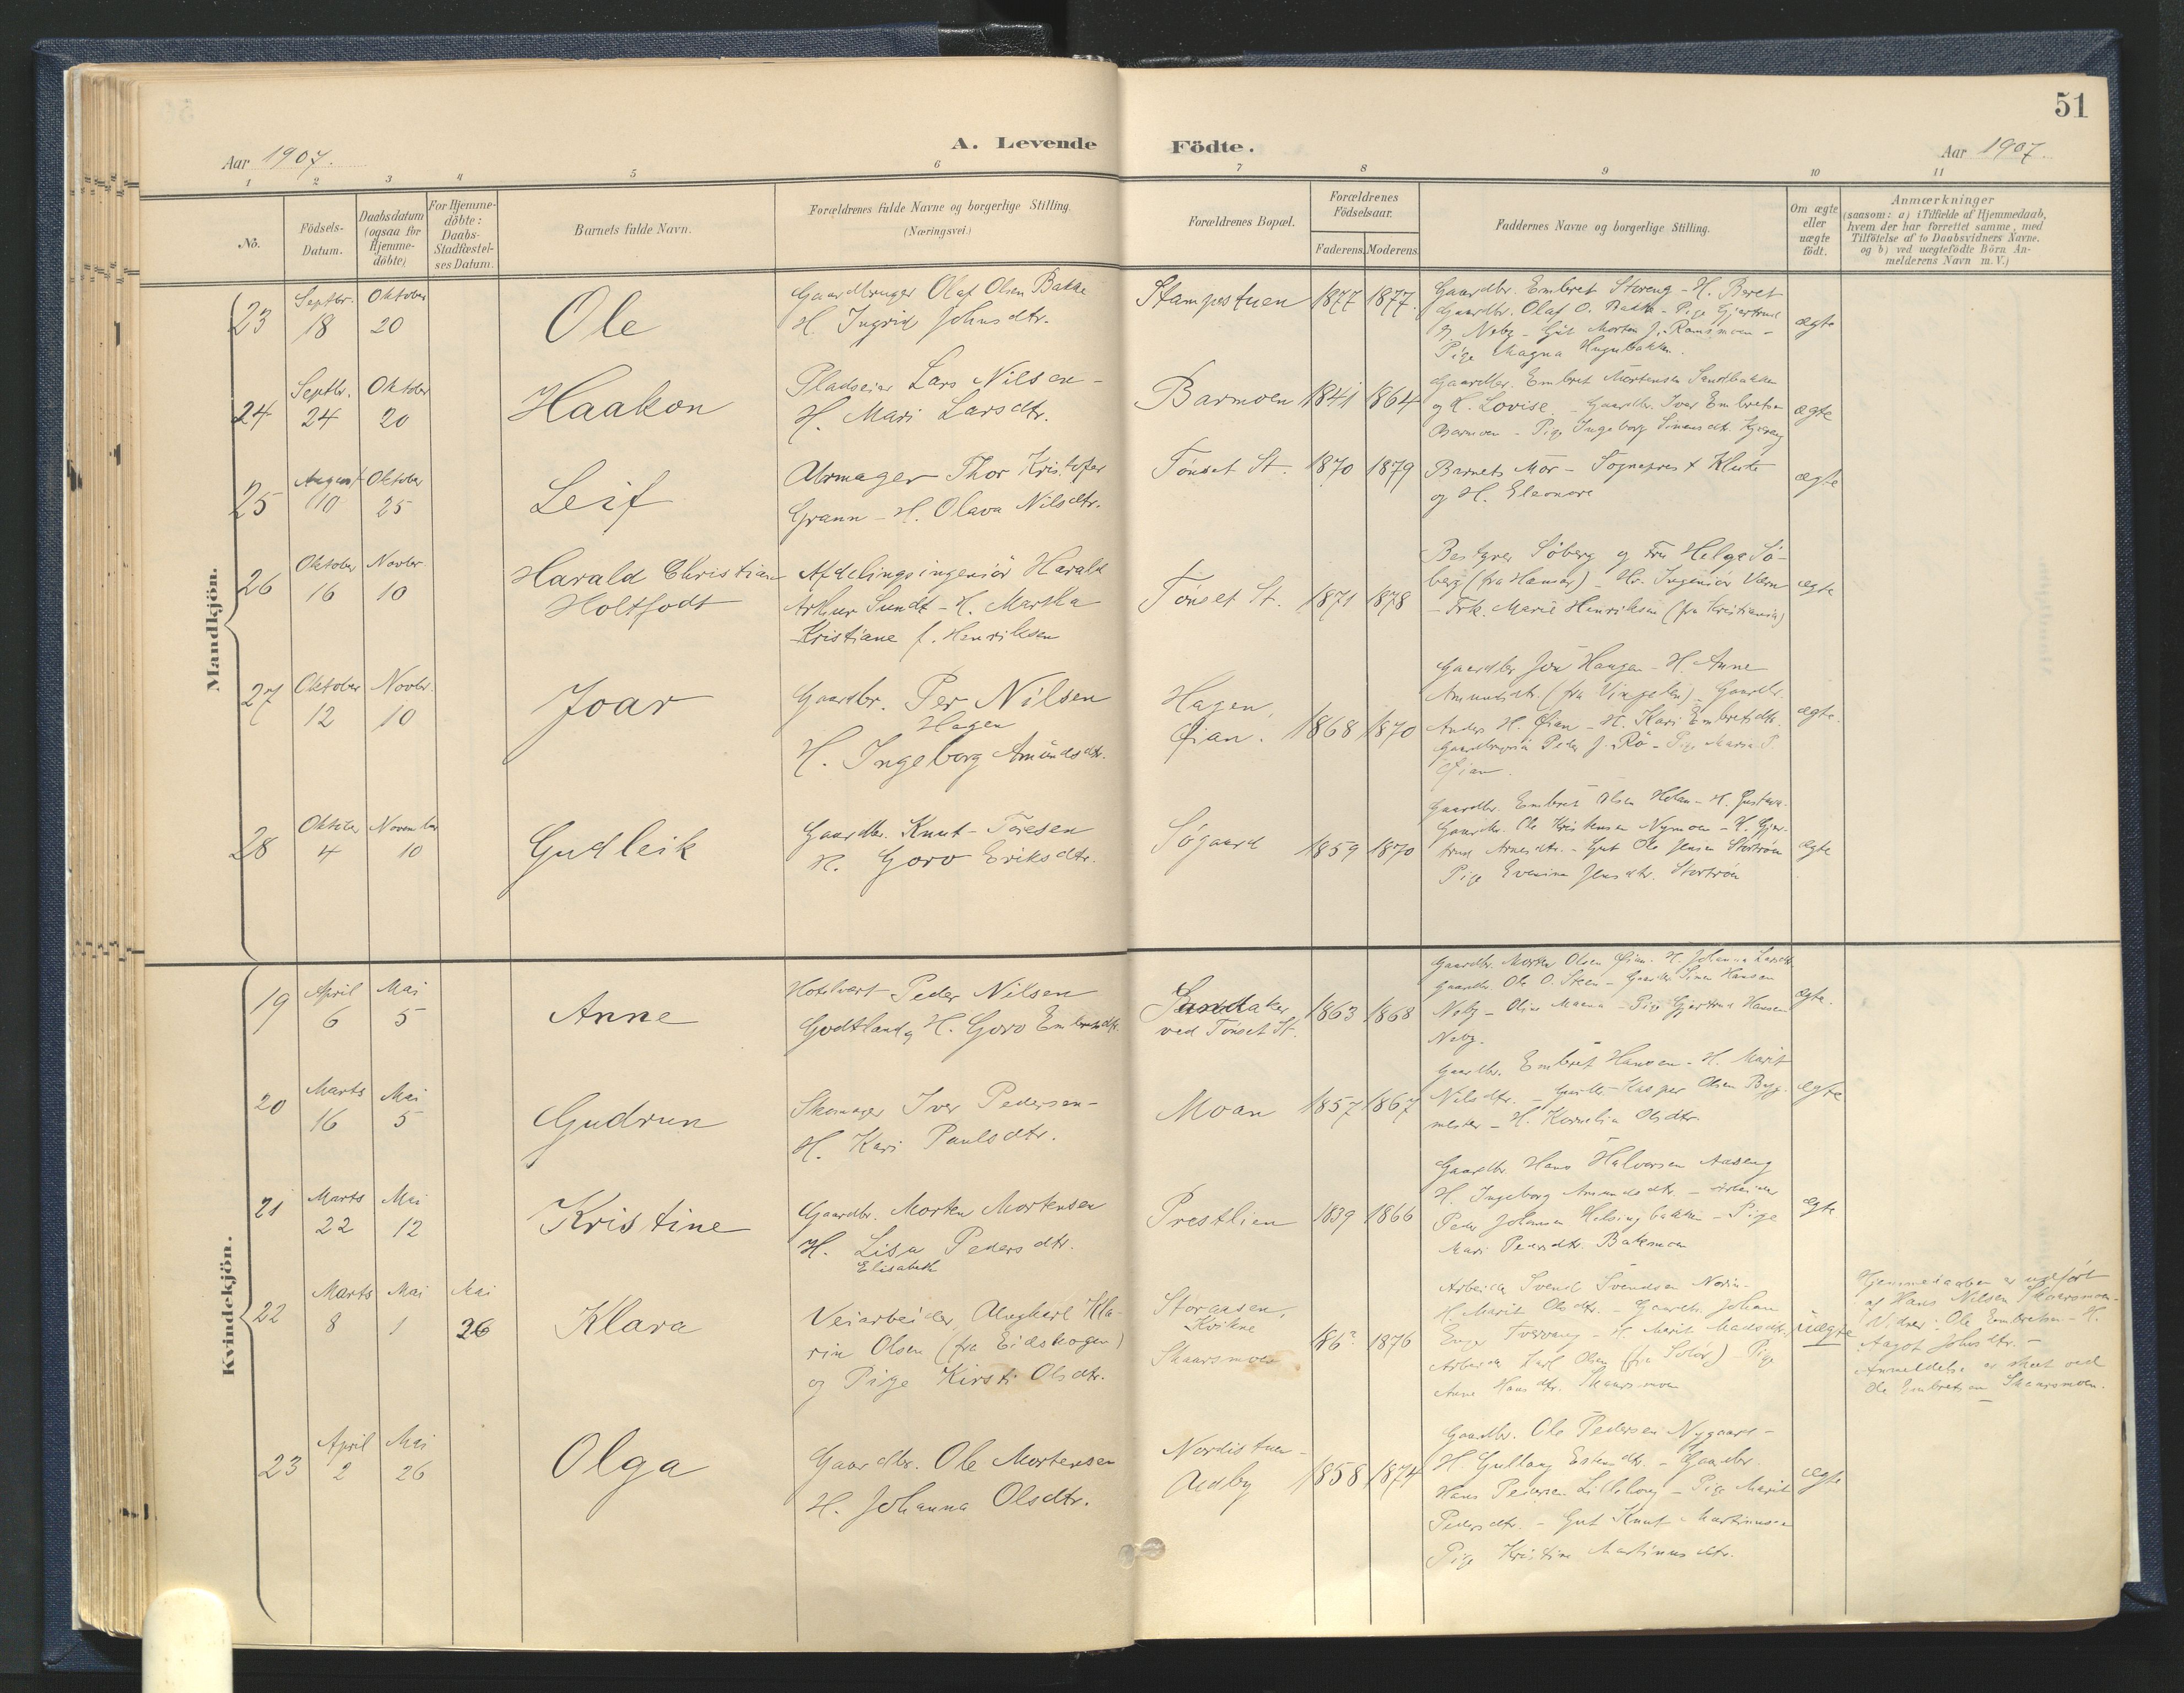 51
A. Levende Födte.
Aar 1907.
Aar 1907.
1 2 3 4 5 6 7 8 9 10 11
No.
Födsels-
Datum.
Daabsdatum
(ogsaa for
Hjemme-
döbte)
For Hjemme-
döbte:
Daabs-
Stadfæstel-
ses Datum.
Barnets fulde Navn.
Forældrenes fulde Navne og borgerlige Stilling.
(Næringsvei.)
Forældrenes Bopæl.
Forældrenes
Födselsaar.
Faderens. Moderens.
Faddernes Navne og borgerlige Stilling.
Om ægte
eller
uægte
födt.
Anmærkninger
(saasom: a) i Tilfælde af Hjemmedaab,
hvem der har forrettet samme, med
Tilföielse af to Daabsvidners Navne,
og b) ved uægtefödte Börn An-
melderens Navn m. V.)
Mandkjön.
23
Septbr. 18
Oktober 20
Ole
Gaardbruger Olaf Olsen Bakke
H. Ingrid Johnsdtr.
Stampestuen
1877 1877.
Gaardbr. Embret Storeng - H. Beret
Gaardbr. Olaf O. Bakke - Pige Gjertrud
Neby - Gut Morten J. Ramsmoen -
Pige Magna
ægte
24
Septbr. 24
Oktober 20
Haakon
Pladseier Lars Nilsen -
H. Mari Larsdtr.
Barmoen
1841 1864
Gaardbr. Embret Mortensen Sandbakken
og H. Lovise - Gaardbr. Ivar Embretsen
Barmoen - Pige Ingeborg Simensdtr.
ægte
25
August 10
Oktober 25
Leif
Urmager Thor Kristofer
Grann - H. Olava Nilsdtr.
Tönset St.
1870 1879
Barnets Mor - Sogneprest
og H. Eleonore
ægte
26
Oktober 16
Novbr. 10
Harald Christian
Holtfodt
Afdelingsingeniör Harald
Arthur Sundt - H. Martha
Kristiane f. Henriksen
Tönset St.
1871 1878
Bestyrer Söberg og Fru Helga Sö-
berg (fra Hamar) - Hr. Ingeniör
- Frk. Marie Henriksen (fra Kristiania)
ægte
27
Oktober 12
Novbr. 10
Joar
Gaardbr. Per Nilsen
Hagen
H. Ingeborg Amundsdtr.
Hagen,
Øian.
1868 1870
Gaardbr. Jon Haugen - H. Anne
Amundsdtr. (fra Vingelen) - Gaardbr.
Anders H. Øian - H. Kari Embretsdtr.
Peder J. Rö - Pige Marie P.
Øian.
ægte.
28
Oktober 4
November 10
Gudleik
Gaardbr. Knut Toresen
H. Goro Eriksdtr.
Sögaard
1859 1870
Gaardbr. Embret Olsen - H. Gustava.
Gaardbr. Ole Kristensen Nymoen - H. Gjer-
trud Arnesdtr. - Gut Ole Jensen Störtröen
Pige Jensdtr. Störtröen
ægte
Kvindekjön.
19
April 6
Mai 5
Anne
Hotelvært Peder Nilsen
Godtland og H. Goro Embretsdtr.
Sandaker
ved Tönset St.
1863 1868
Gaardbr. Morten Olsen Øian - H. Johanna Larsdtr.
Gaardbr. Ole O. Steen - Gaardbr. Simen Hansen
Neby - - Pige Gjertrud Hansen
Neby.
ægte.
20
Marts 16
Mai 5
Gudrun
Skomager Iver Pedersen -
H. Kari Paulsdtr.
Moan
1857 1867
Gaardbr. Embret Hansen - H. Marit
Nilsdtr. - Gaardbr. Kasper Olsen Byg-
mester - H. Kornelia Olsdtr.
ægte
21
Marts 22
Mai 12
Kristine
Gaardbr. Morten Mortensen
H. Lisa Pedersdtr.
Elisabeth
Prestlien
1839 1866
Gaardbr. Hans Halvorsen Aaseng
H. Ingeborg Amundsdtr. - Arbeider
Peder Johansen - Pige
Mari Pedersdtr. Bakmoen
ægte
22
Marts 8
Mai 1
Mai 26
Klara
Veiarbeider Kla-
rin Olsen (fra Eidskogen)
og Pige Kirsti Olsdtr.
Storaasen,
Kvikne
Skaarsmoen
186? 1876
Arbeider Svend Svendsen
H. Marit Olsdtr. - Gaardbr. Johan
Tversvang - H. Marit Madsdtr.
Arbeider Karl Olsen (fra Solör) Pige
Anne Hansdtr. Skaarsmoen
uægte
Hjemmedaaben er udfört
af Hans Nilsen Skaarsmoen -
Vidner: Ole Embretsen - H.
Aagot Johsdtr. -
Anmeldelse er skeet ved
Ole Embretsen Skaarsmoen.
23
April 2
Mai 26
Olga
Gaardbr. Ole Mortensen
H. Johanna Olsdtr.
Nordistuen -
Audby
1858 1874
Gaardbr. Ole Pedersen Nygaard -
H. Gullaug Estensdtr. - Gaardbr.
Hans Pedersen - Pige Marit
Pedersdtr. - Gut Knut Martinusen
Pige Kristine Martinusdtr.
ægte